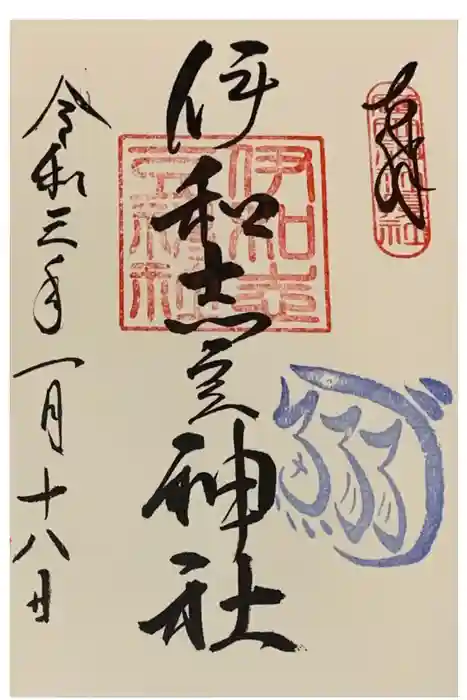 奉拝
伊和志豆神社
伊和志
豆神社
鰯づ
令和三年一月十八日